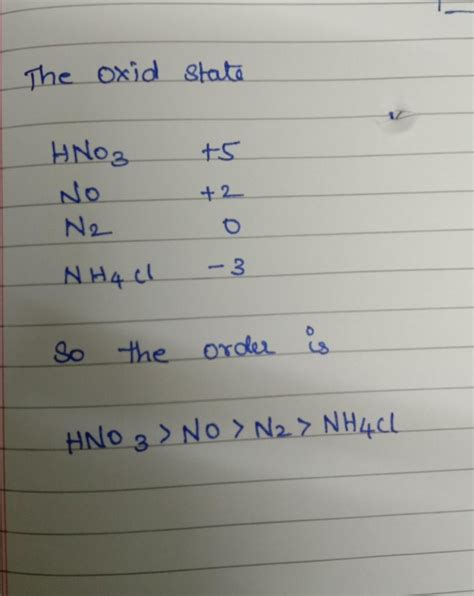 The oxid state
HNO3 +5
NO +2
N2 0
NH4Cl -3
So the order is
HNO3 > NO > N2 > NH4Cl